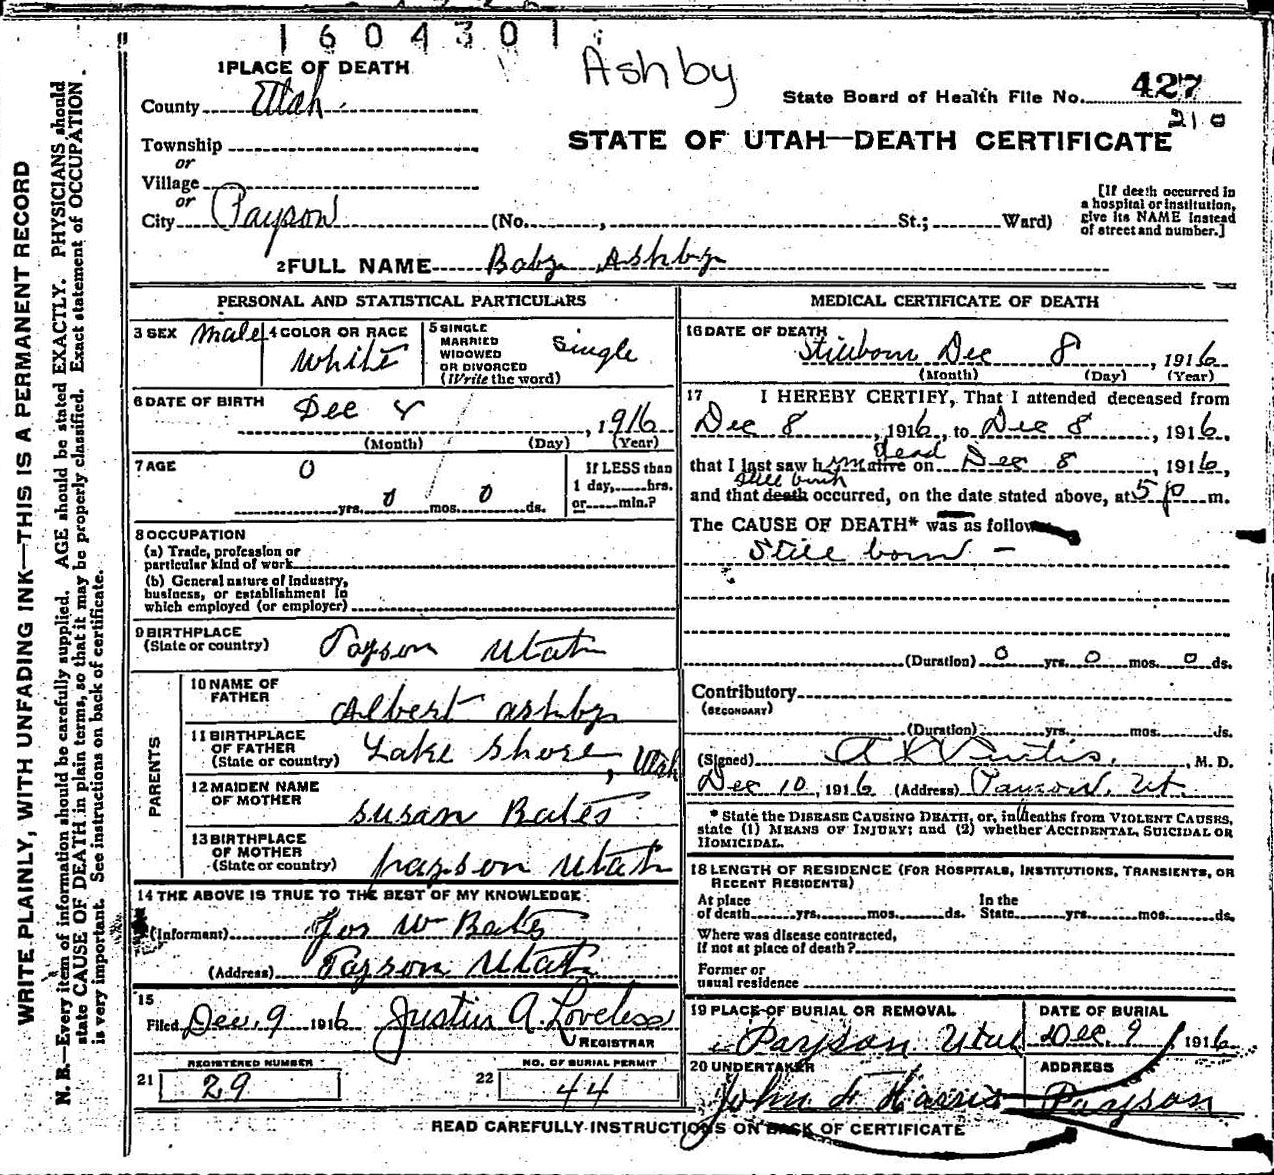 1604301
Ashby
1 PLACE OF DEATH
County Utah
State Board of Health File No. 427
210
STATE OF UTAH—DEATH CERTIFICATE
Township
or
Village
or
City Payson (No. , St.; Ward)
[If death occurred in
a hospital or institution,
give its NAME instead
of street and number.]
2 FULL NAME Baby Ashby
PERSONAL AND STATISTICAL PARTICULARS
3 SEX Male
4 COLOR OR RACE
White
5 SINGLE
MARRIED
WIDOWED
OR DIVORCED
(Write the word)
Single
6 DATE OF BIRTH Dec 8, 1916
(Month) (Day) (Year)
7 AGE
0 yrs. 0 mos. 0 ds.
If LESS than
1 day, hrs.
or min.?
8 OCCUPATION
(a) Trade, profession or
particular kind of work
(b) General nature of industry,
business, or establishment in
which employed (or employer)
9 BIRTHPLACE
(State or country) Payson Utah
PARENTS
10 NAME OF
FATHER Albert Ashby
11 BIRTHPLACE
OF FATHER
(State or country) Lake Shore, Utah
12 MAIDEN NAME
OF MOTHER Susan Bates
13 BIRTHPLACE
OF MOTHER
(State or country) payson Utah
14 THE ABOVE IS TRUE TO THE BEST OF MY KNOWLEDGE
(Informant) Jos Wm Bates
(Address) Payson Utah
15
Filed Dec. 9 1916 Justin A. Loveless
REGISTRAR
REGISTERED NUMBER
21 29
NO. OF BURIAL PERMIT
22 44
MEDICAL CERTIFICATE OF DEATH
16 DATE OF DEATH
Stillborn Dec 8, 1916
(Month) (Day) (Year)
17 I HEREBY CERTIFY, That I attended deceased from
Dec 8, 1916, to Dec 8, 1916,
dead
that I last saw him alive on Dec 8, 1916,
still birth
and that death occurred, on the date stated above, at 5 p m.
The CAUSE OF DEATH* was as follows
Still born —
(Duration) 0 yrs. 0 mos. 0 ds.
Contributory
(SECONDARY)
(Duration) yrs. mos. ds.
(Signed) A L Curtis, M. D.
Dec 10, 1916 (Address) Payson, Ut.
* State the DISEASE CAUSING DEATH, or, in deaths from VIOLENT CAUSES,
state (1) MEANS OF INJURY; and (2) whether ACCIDENTAL, SUICIDAL OR
HOMICIDAL.
18 LENGTH OF RESIDENCE (FOR HOSPITALS, INSTITUTIONS, TRANSIENTS, OR
RECENT RESIDENTS)
At place
of death yrs. mos. ds.
In the
State yrs. mos. ds.
Where was disease contracted,
if not at place of death?
Former or
usual residence
19 PLACE OF BURIAL OR REMOVAL
Payson Utah
DATE OF BURIAL
Dec. 9, 1916
20 UNDERTAKER
John F Harris
ADDRESS
Payson
READ CAREFULLY INSTRUCTIONS ON BACK OF CERTIFICATE
WRITE PLAINLY, WITH UNFADING INK—THIS IS A PERMANENT RECORD
N. B.—Every item of information should be carefully supplied. AGE should be stated EXACTLY. PHYSICIANS should
state CAUSE OF DEATH in plain terms, so that it may be properly classified. Exact statement of OCCUPATION
is very important. See instructions on back of certificate.